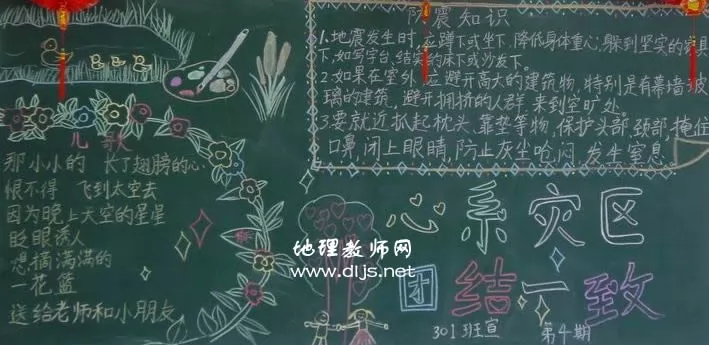 防震知识
1.地震发生时,应蹲下或坐下,降低身体重心;躲到坚实的家具
下,如写字台,结实的床下或沙发下。
2.如果在室外,应避开高大的建筑物,特别是有幕墙玻
璃的建筑,避开拥挤的人群,来到空旷处。
3.要就近抓起枕头、靠垫等物,保护头部、颈部,掩住
口鼻,闭上眼睛,防止灰尘呛闷,发生窒息
儿歌
那小小的 长了翅膀的心
恨不得 飞到太空去
因为晚上天空的星星
眨眼诱人
想摘满满的
一花篮
送给老师和小朋友
心系灾区
团结一致
地理教师网
www.dljs.net
301班宣 第4期